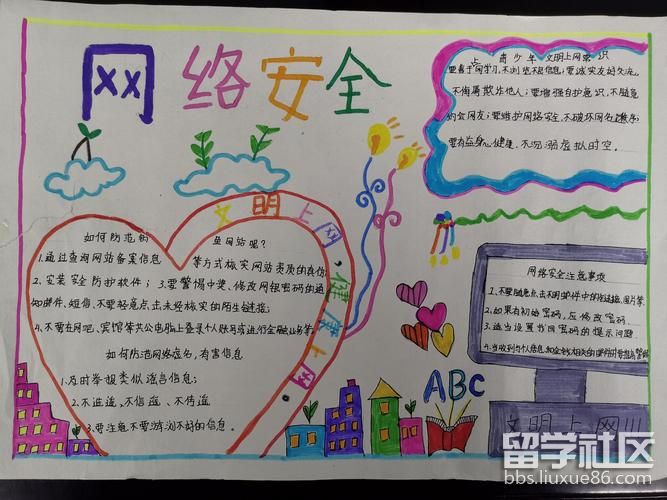 网络安全
青少年文明上网常识
要善于网学习,不浏览不良信息;要诚实友好交流,
不侮辱欺诈他人;要增强自护意识,不随意
约会网友;要维护网络安全,不破坏网络秩序;
要有益身心健康,不沉溺虚拟时空。
文明上网,健康上网
如何防范钓鱼网站呢?
1.通过查询网站备案信息等方式核实网站资质的真伪
2.安装安全防护软件;3.要警惕中奖、修改网银密码的通
知邮件、短信,不要轻意点击未经核实的陌生链接;
4.不要在网吧、宾馆等公共电脑上登录个人账号或进行金融业务等
如何防范网络虚名,有害信息
1.及时举报类似谣言信息;
2.不造谣、不信谣、不传谣
3.要注意不要浏览不好的信息。
网络安全注意事项
1.不要随意点击不明邮件中的链接、图片等
2.如果有初始密码,应修改密码
3.适当设置书回密码的提示问题
4.当收到与个人信息
ABC
文明上网!!!
留学社区
bbs.liuxue86.com